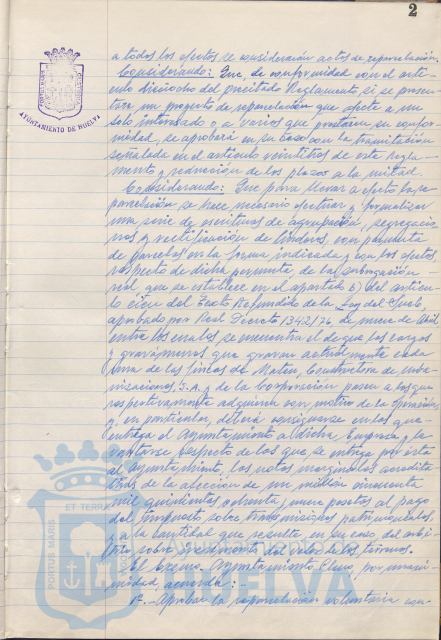 2
a todos los efectos se consideración actos de reparcelación.
Considerando: Que, de conformidad con el artí-
culo dieciocho del precitado Reglamento, si se presen-
tara un proyecto de reparcelación que afecte a un
solo interesado o a varios que prestaren su confor-
midad, se aprobará en su caso con la tramitación
señalada en el artículo veintitrés de este regla-
mento y reducción de los plazos a la mitad.
Considerando: Que para llevar a efecto la re-
parcelación se hace necesario efectuar y formalizar
una serie de escrituras de agrupación, segregacio-
nes y rectificación de linderos, con permuta
de parcelas en la forma indicada y con los efectos,
respecto de dicha permuta, de la subrogación
real que se establece en el apartado b) del artícu-
lo cien del Texto Refundido de la Ley del Suelo,
aprobado por Real Decreto 1342/76, de nueve de Abril
entre los cuales se encuentra el de que las cargas
y gravámenes que gravan actualmente cada
una de las fincas de Mateu, Constructora de urba-
nizaciones, S.A. y de la Corporación pasen a las que
respectivamente adquieren con motivo de la operación
y, en particular, deberá consignarse en las que
entrega el Ayuntamiento a dicha Empresa, y le-
vantarse respecto de las que se entrega por ésta
al Ayuntamiento, las notas marginales acredita-
tivas de la afección de un millón cincuenta
mil quinientas ochenta y nueve pesetas al pago
del impuesto sobre transmisiones patrimoniales,
y a la cantidad que resulte en su caso del arbi-
trio sobre incremento del valor de los terrenos.
El Excmo. Ayuntamiento Pleno, por unani-
midad, acuerda:-
1º.- Aprobar la reparcelación voluntaria con-
AYUNTAMIENTO DE HUELVA
PORTUS MARIS ET TERRAE
HUELVA